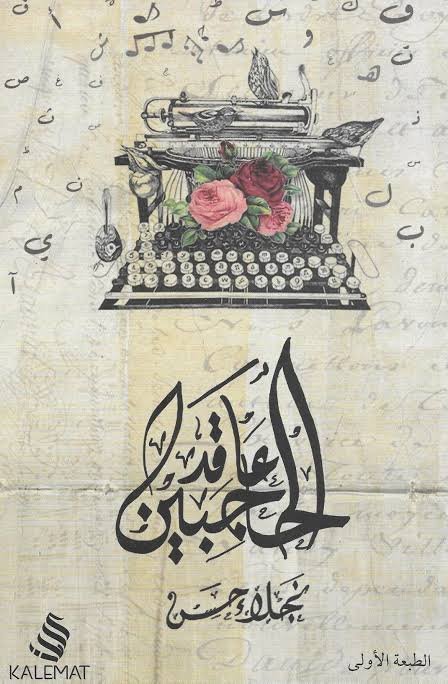 عاقد
الحاجبين
نجلاء حسن
KALEMAT
الطبعة الأولى